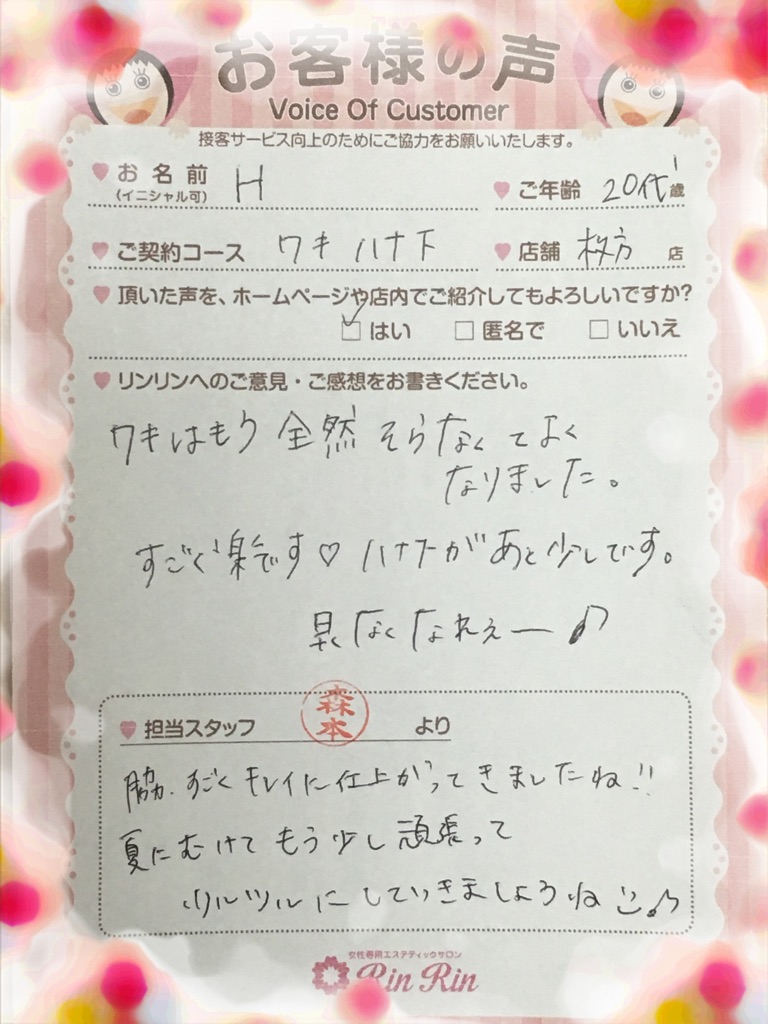 お客様の声
Voice Of Customer
接客サービス向上のためにご協力をお願いいたします。
お名前 (イニシャル可) H
ご年齢 20代 歳
ご契約コース ワキ ハナ下
店舗 枚方 店
頂いた声を、ホームページや店内でご紹介してもよろしいですか?
はい 匿名で いいえ
リンリンへのご意見・ご感想をお書きください。
ワキはもう全然そらなくてよく
なりました。
すごく楽です♡ ハナ下があと少しです。
早くなくなれぇー♪
担当スタッフ 森本 より
脇、すごくキレイに仕上がってきましたね!!
夏にむけてもう少し頑張って
ツルツルにしていきましょうね♪
女性専用エステティックサロン
Rin Rin